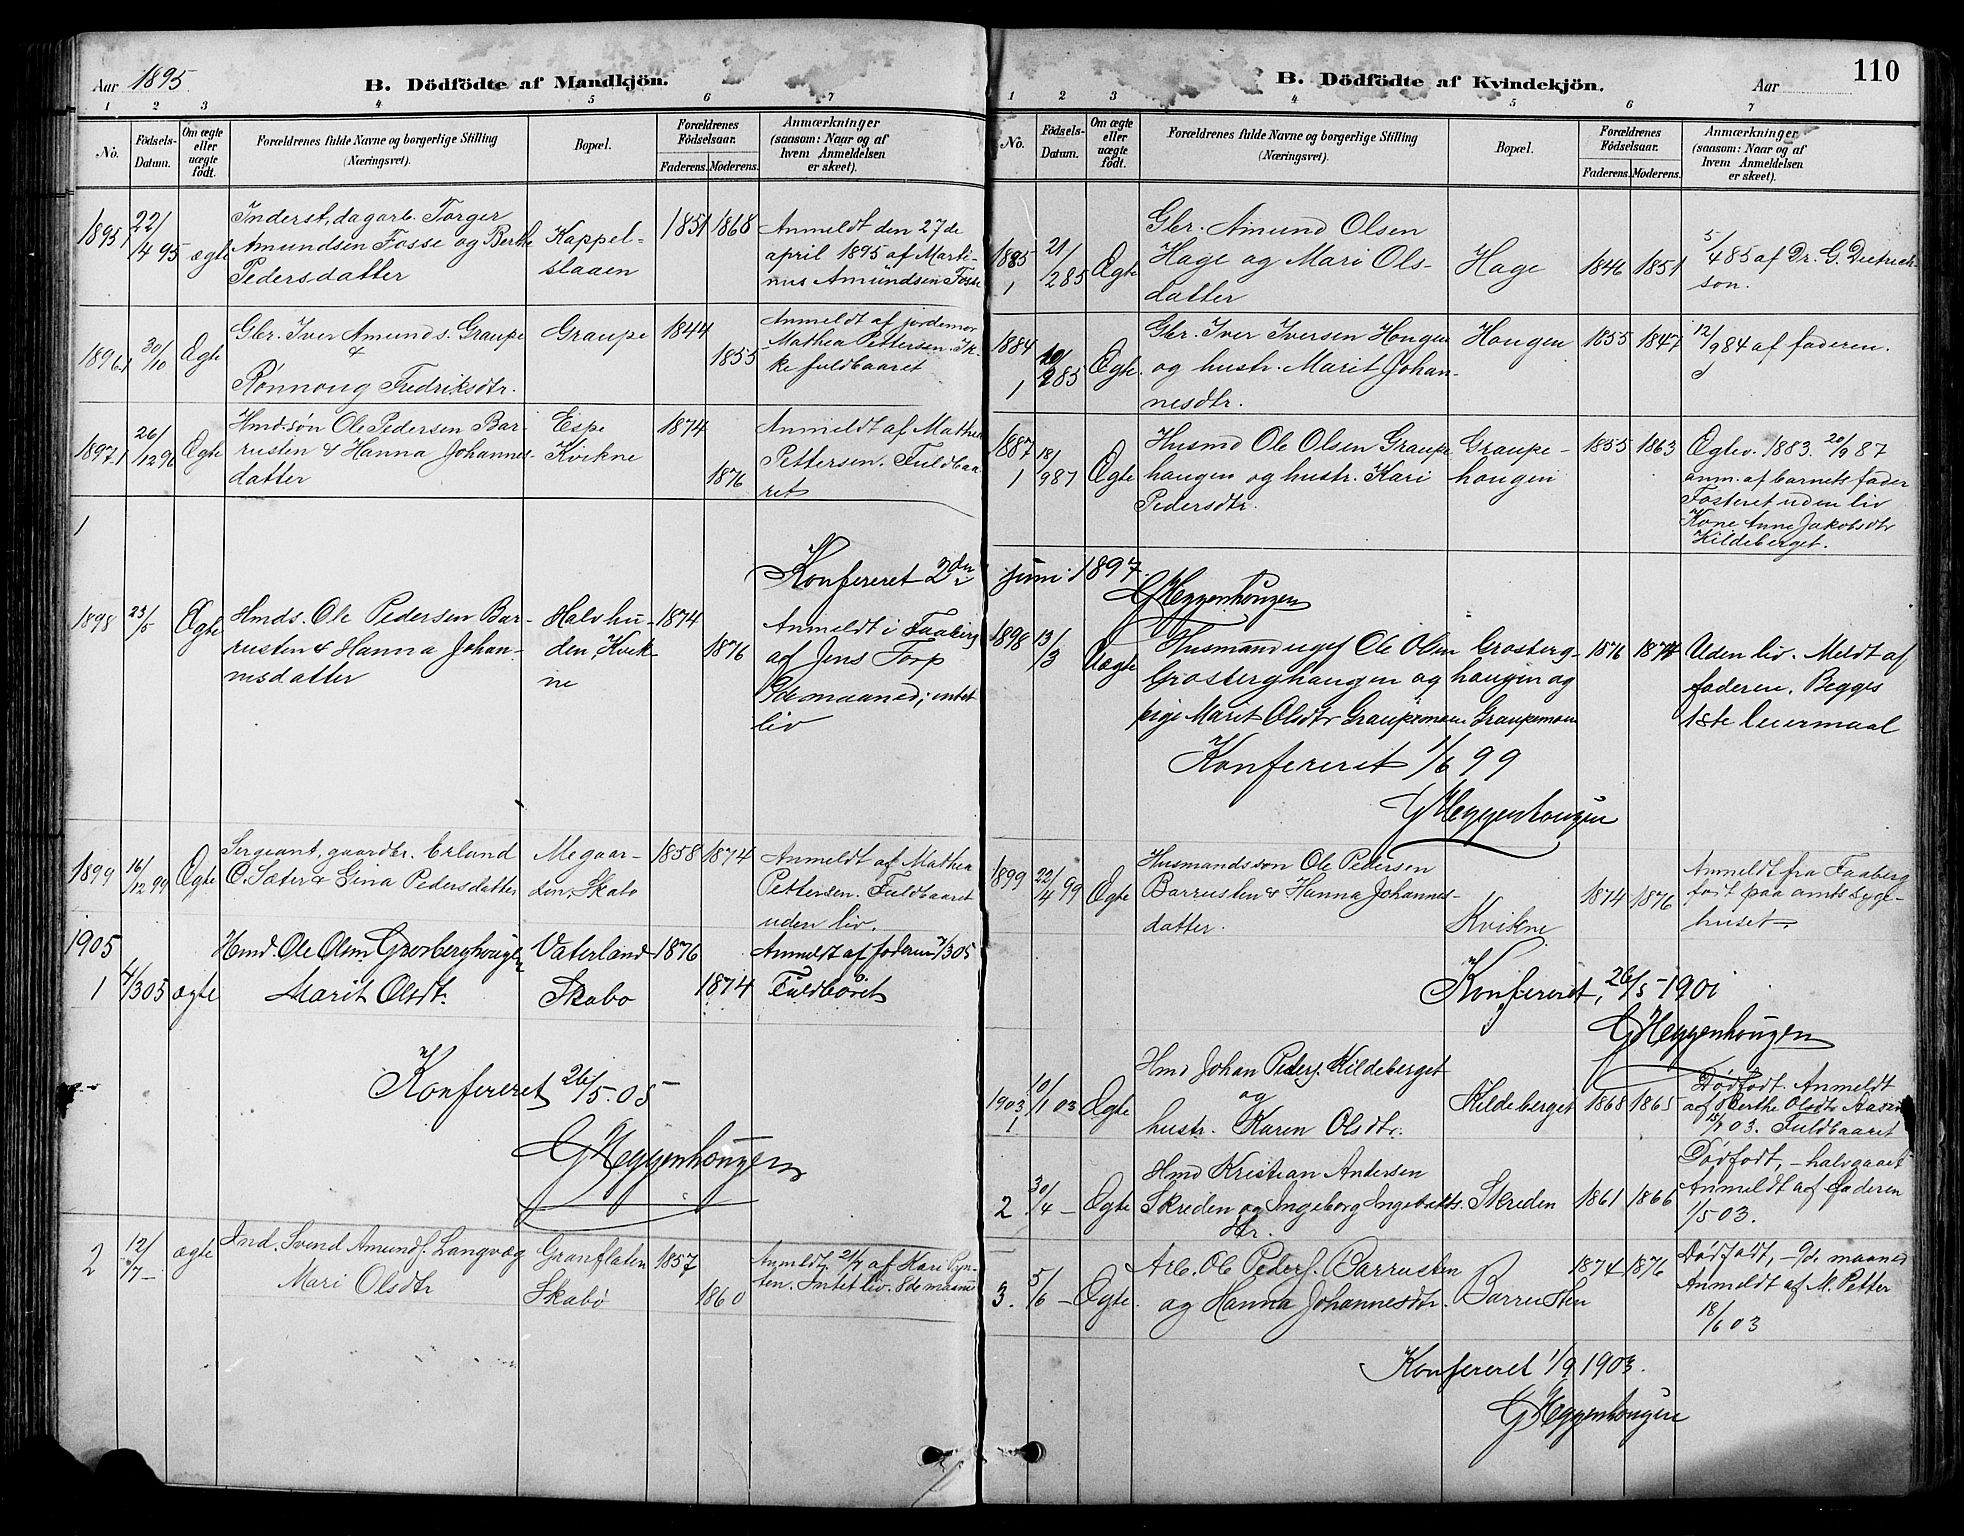 Aar 1895.
B. Dödfödte af Mandkjön.
1 2 3 4 5 6 7
No.
Födsels-Datum.
Om ægte eller uægte födt.
Forældrenes fulde Navne og borgerlige Stilling
(Næringsvei).
Bopæl.
Forældrenes Födselsaar.
Faderens. Moderens.
Anmærkninger
(saasom: Naar og af
hvem Anmeldelsen
er skeet).
Inderst, dagarb. Torger
1895 1 22/4 95 ægte Amundsen Fosse og Berthe Kappel- 1851 1868 Anmeldt den 27de
Pedersdatter slaaen april 1895 af Marti-
nus Amundsen Fosse
Gbr. Iver Amunds. Graupe Graupe 1844 Anmeldt af jordemor
1896.1 30/10 Ægte & 1855 Mathea Pettersen. Ik-
Rønnoug Fredriksdtr. ke fuldbaaret
Hmd.søn Ole Pedersen Bar- Espe 1874 Anmeldt af Mathea
1897.1 26/12 96 Ægte rusten & Hanna Johannes- Kvikne 1876 Pettersen. Fuldbaa-
datter ret
1
Konfereret 2den
1898 23/5 Ægte Hmds. Ole Pedersen Bar- Halvhu- 1874 Anmeldt i Faaberg
rusten & Hanna Johan- den, Kvik- 1876 af Jens Torp
nesdatter ne maaned; intet
liv
Sergeant, gaardbr. Erland
1899 16/12 99 Ægte O. Sæter & Gina Pedersdatter Megaar- 1858 1874 Anmeldt af Mathea
den, Skabo Pettersen. Fuldbaaret
uden liv.
1905 Hmd. Ole Olsen Grosberghougen Vaterland 1876 Anmeldt af faderen /3 05
1 4/3 05 ægte Marit Olsdt. Skabo 1874 Fuldbåret
Konfereret 26/5.05
G Heggenhougen
2 12/7 - ægte Ind. Svend Amunds. Langvæg Granflaten 1857 Anmeldt 21/7 af Kari Ryn-
Mari Olsdtr Skabo 1860 ten. Intet liv. 8de maaned
110
B. Dödfödte af Kvindekjön.
Aar
1 2 3 4 5 6 7
No.
Födsels-Datum.
Om ægte eller uægte födt.
Forældrenes fulde Navne og borgerlige Stilling
(Næringsvei).
Bopæl.
Forældrenes Födselsaar.
Faderens. Moderens.
Anmærkninger
(saasom: Naar og af
hvem Anmeldelsen
er skeet).
Gbr. Amund Olsen
1885 21/2 85 Ægte Hage og Mari Ols- Hage 1846 1851 5/4 85 af Dr. G. Dietrich-
1 datter son.
1884 Gbr. Iver Iversen Hougen Hougen 1855 1847 12/9 84 af faderen.
1 Ægte og hustr. Marit Johan-
nesdtr.
1887 Husmd Ole Olsen Graupe- Graupe- 1855 1863 Ægtev. 1883. 20/9 87
1 18/9 87 Ægte haugen og hustr. Kari hougen anm. af barnets fader
Pedersdtr. Fosteret uden liv
Kone Anne Jakobsdtr
Kildeberget.
juni 1897.
G Heggenhougen
1898 13/3 Uægte Husmand ugift Ole Olsen Grosberg- 1876 1874 Uden liv. Meldt af
Grosberghaugen og haugen og faderen. Begges
pige Marit Olsdtr Graupemoen Graupemoen 1ste leiermaal
Konfereret 1/6 99
G Heggenhougen
1899 22/4 99 Ægte Husmandsson Ole Pedersen Anmeldt fra Faaberg
Barrusten & Hanna Johannes- 1874 1876 født paa amtssyge-
datter. Kvikne huset.
Konfereret, 26/5 - 1901
G Heggenhougen
Hmd Johan Peders. Kildeberget Dødfødt. Anmeldt
1903 10/1 03 Ægte og Kildeberget 1868 1865 af Berthe Olsdtr
1 hustr. Karen Olsdtr. 03. Fuldbaaret
Hmd Kristian Andersen Dødfødt, - halvgaaet
2 30/4 - Ægte Skreden og Ingeborg Ingebrigts. Skreden 1861 1866 Anmeldt af faderen
dtr. 1/5 03.
Arb. Ole Peders. Barrusten 1874 1876 Dødfødt, - 9de maaned
3. 5/6 - Ægte. og Hanna Johannesdtr. Barrusten Anmeldt af M. Petter
18/6 03
Konfereret 1/9 1903.
G Heggenhougen